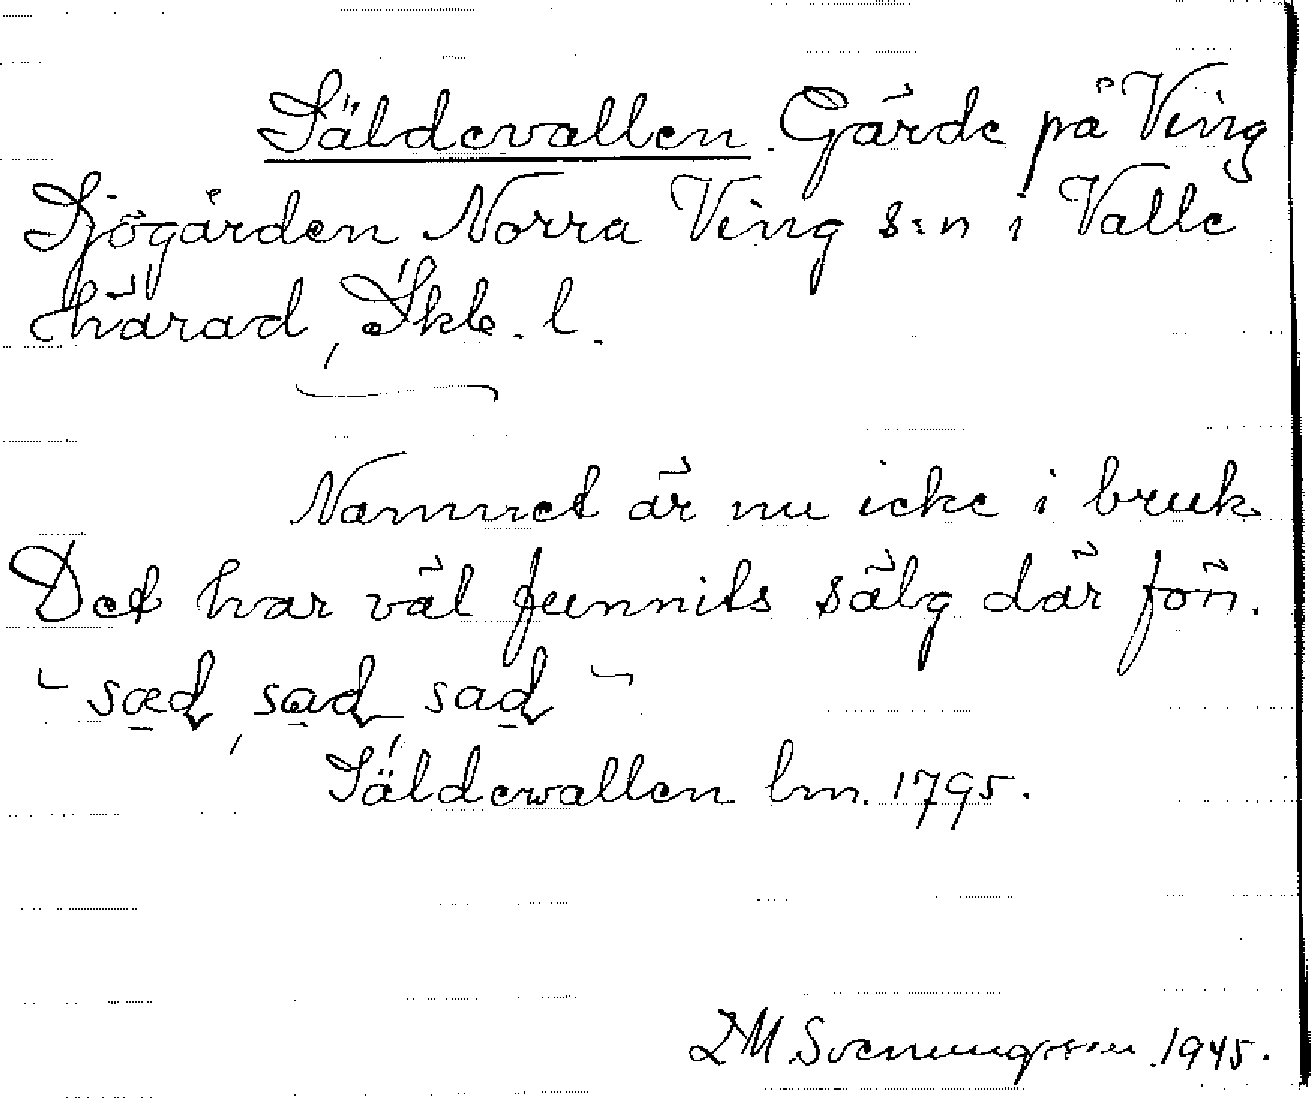 Säldevallen. Gärde på Ving
Sjögården Norra Ving s:n i Valle
härad, Skb. l.
Namnet är nu icke i bruk
Det har väl funnits sälg där förr.
sæd, sad, sad
Säldewallen lm. 1795.
1945.